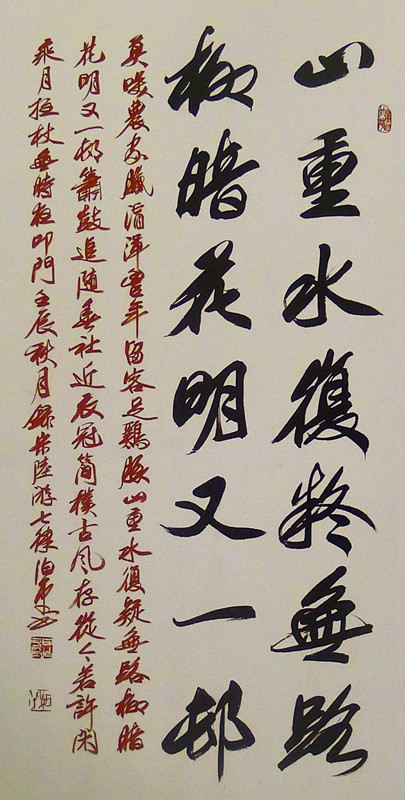 山重水復疑無路
柳暗花明又一邨
莫咲農家臘酒渾豐年留客足鷄豚山重水復疑無路柳暗
花明又一邨簫鼓追隨春社近衣冠簡樸古風存從今若許閑
乘月拄杖無時夜叩門壬辰秋月錄宋陸游七律